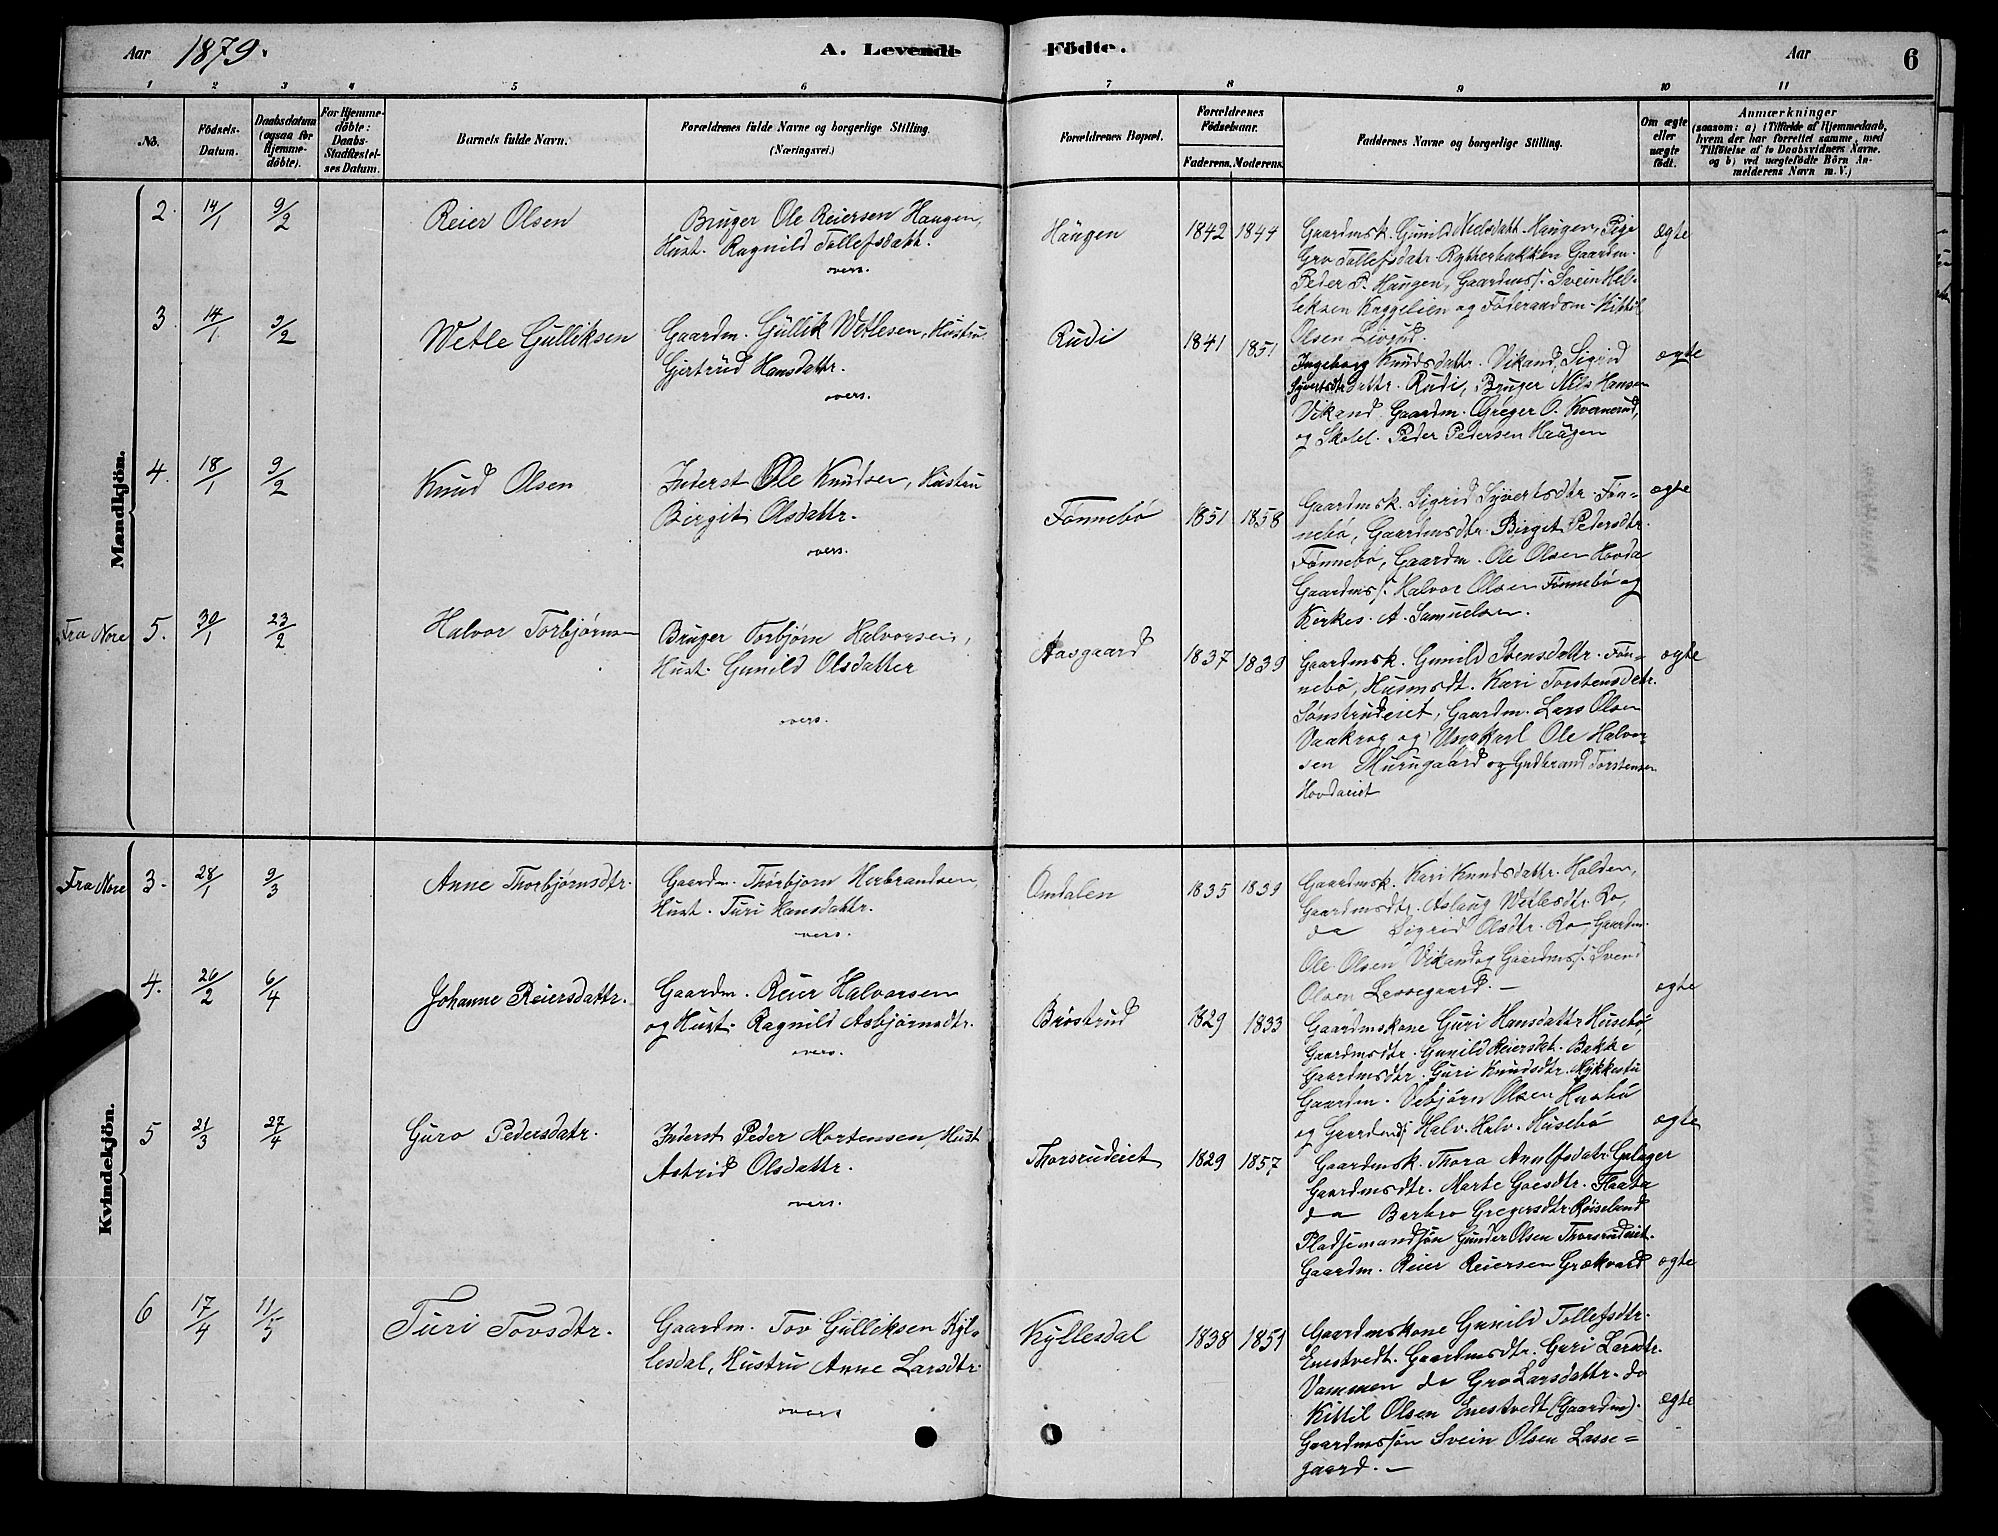 Aar 1879. A. Levende Födte. Aar 6
1 2 3 4 5 6 7 8 9 10 11
No. Födsels-Datum. Daabsdatum (ogsaa for Hjemmedöbte). For Hjemmedöbte: Daabs-Stadfæstelses Datum. Barnets fulde Navn. Forældrenes fulde Navne og borgerlige Stilling. (Næringsvei.) Forældrenes Bopæl. Forældrenes Födselsaar. Faderens. Moderens. Faddernes Navne og borgerlige Stilling. Om ægte eller uægte födt. Anmærkninger (saasom: a) i Tilfælde af Hjemmedaab, hvem der har forrettet samme, med Tilföielse af to Daabsvidners Navne. og b) ved uægtefödte Börn Anmelderens Navn m. V.)
Mandkjön.
2. 14/1 9/2 Reier Olsen
Bruger Ole Reiersen Haugen,
Hust. Ragnild Tollefsdatt.
overs.
Haugen 1842 1844
Gaardmsk. Gunild Nielsdatt. Haugen, Pige
Gro Tollefsdatr Rytherbakken Gaardm.
Peder P. Haugen, Gaardmss. Svein Hel-
leksen Knggelien og Föderaadsm. Kittil
Olsen Livrud.
ægte
3. 14/1 9/2 Wetle Gulliksen
Gaardm. Gullik Wetlesen, Hustru
Gjertrud Hansdattr.
overs.
Rudi 1841 1851
Ingeborg Knudsdattr. Vikand, Sigrid
Syvertsdattr. Rudi, Bruger Nils Hansen
Vikand Gaardm. Greger O. Kvernerud,
og Skolel. Peder Pedersen Haugen
ægte
4. 18/1 9/2 Knud Olsen
Inderst Ole Knudsen, Hustru
Birgit Olsdattr.
overs.
Fönnebö 1851 1858
Gaardmsk. Sigrid Syvertsdtr. Fön-
nebö, Gaardmsdtr. Birgit Pedersdtr.
Fönnebö, Gaardm. Ole Olsen Hovda
Gaardmss. Halvor Olsen Fönnebö og
Kirkes. A. Samuelsen.
ægte
Fra Nore 5. 30/1 23/2 Halvor Torbjörnsen
Bruger Torbjörn Halvorsen,
Hust. Gunild Olsdatter
overs.
Aasgaard 1837 1839
Gaardmsk. Gunild Stensdattr. Fön-
nebö, Husmsdt. Kari Torstensdatr.
Sönstrudeiet, Gaardm. Lars Olsen
Vaakrag og Ungkarl Ole Halvor-
sen Murugaard og Gudbrand Torstensen
Hovdaeiet
ægte
Kvindekjön.
Fra Nore 3. 28/1 9/3 Anne Thorbjörnsdtr.
Gaardm. Thorbjorn Herbrandsen,
Hust. Turi Hansdattr.
overs.
Omdalen 1835 1839
Gaardmsk. Kari Knudsdattr. Halden,
Gaardmsdtr. Aslaug Wetlesdtr. Ro,
do Sigrid Olsdtr. Ro Gaardm.
Ole Olsen Vikand og Gaardmss. Svend
Olsen Lessegaard. —
ægte
4. 26/2 6/4 Johanne Reiersdattr.
Gaardm. Reier Halvorsen
og Hust. Ragnild Asbjörnsdtr.
overs.
Bröstrud 1829 1833
Gaardmskone Guri Hansdattr Husebö,
Gaardmsdtr. Gunild Reiersdt. Bakke
Gaardmsdtr. Guri Knudsdtr. Mykkestu
Gaardm. Vebjörn Olsen Husebö
og Gaardmss. Halv. Halv. Husebö
ægte
5 21/3 27/4 Guro Pedersdatr.
Inderst Peder Mortensen, Hust
Astrid Olsdattr.
overs.
Thorsrudeiet 1829 1857
Gaardmsk. Thora Anulfsdatr. Gulager
Gaardmsdtr. Marte Goesdtr. Flaata
do Barbro Gregersdtr. Röiseland
Pladsemandsön Gunder Olsen Thorsrudeiet.
Gaardm. Reier Reiersen Grækvard
ægte
6 17/4 11/5 Turi Tovsdtr.
Gaardm. Tov Gulliksen Kyl-
lesdal, Hustru Anne Larsdtr.
overs
Kyllesdal 1838 1851
Gaardmskone Gunild Tollefsdtr.
Enestvedt. Gaardmsdtr. Guri Larsdtr.
Vammen do Gro Larsdattr. do
Kittil Olsen Enestvedt (Gaardm).
Gaardmssön Svein Olsen Lasse-
gaard. —
ægte